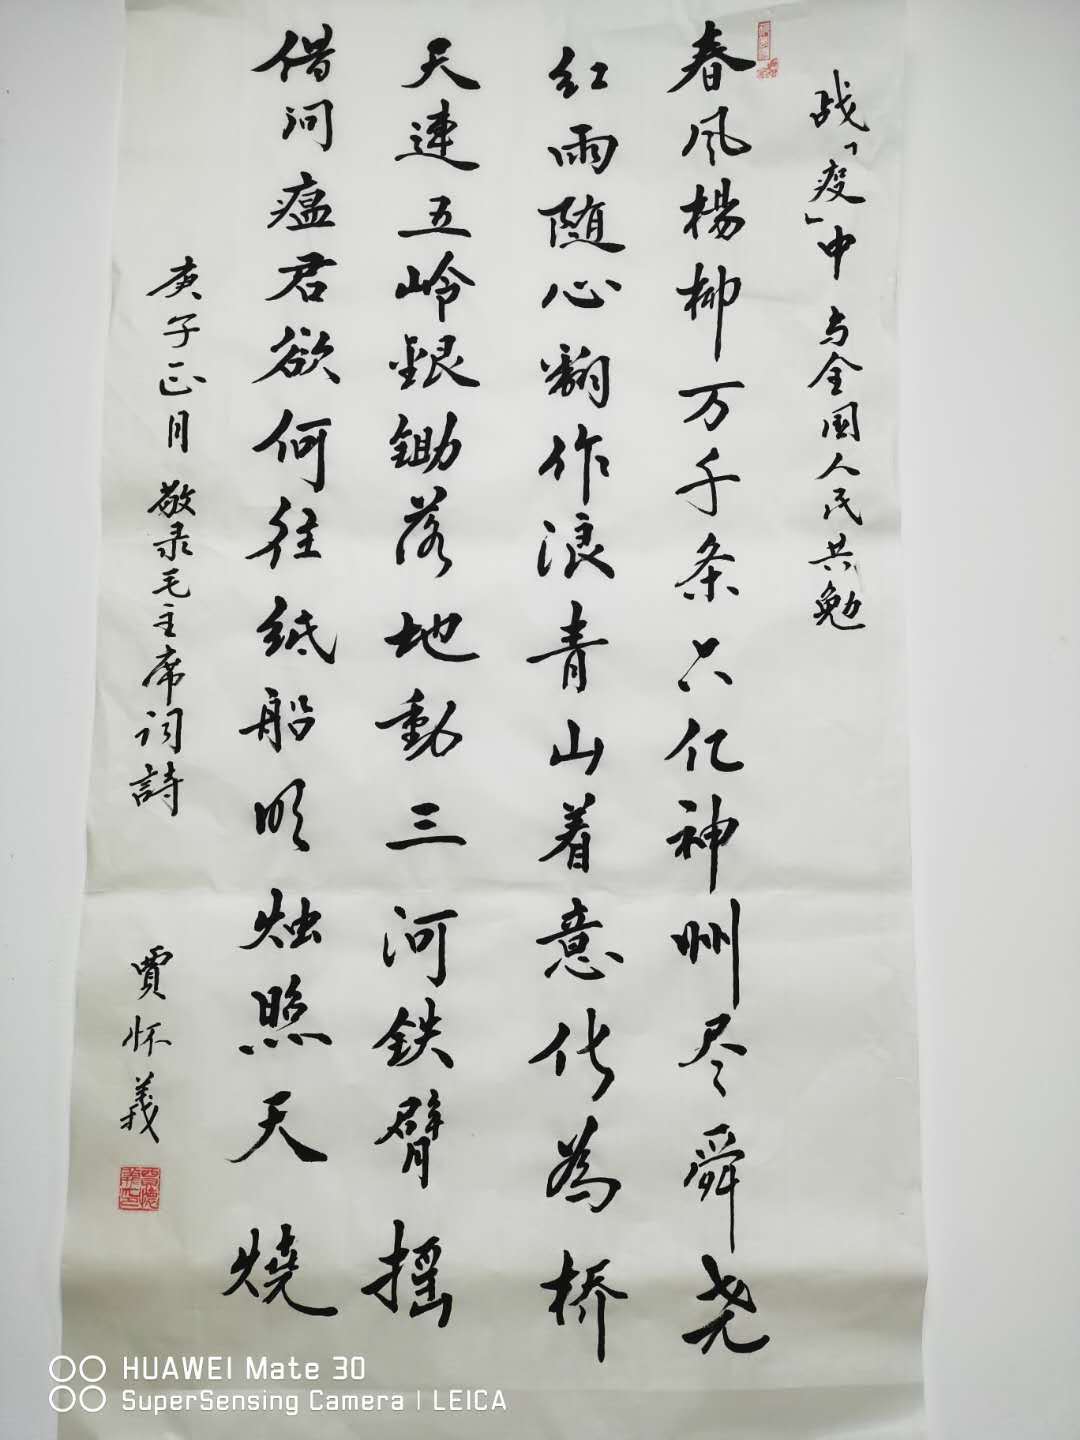 战「疫」中 与全国人民共勉
春风楊柳万千条六亿神州尽舜尧
红雨随心翻作浪青山着意化為桥
天連五岭銀锄落地動三河铁臂摇
借问瘟君欲何往纸船明烛照天燒
庚子正月 敬录毛主席词詩
賈怀義
HUAWEI Mate 30
SuperSensing Camera | LEICA